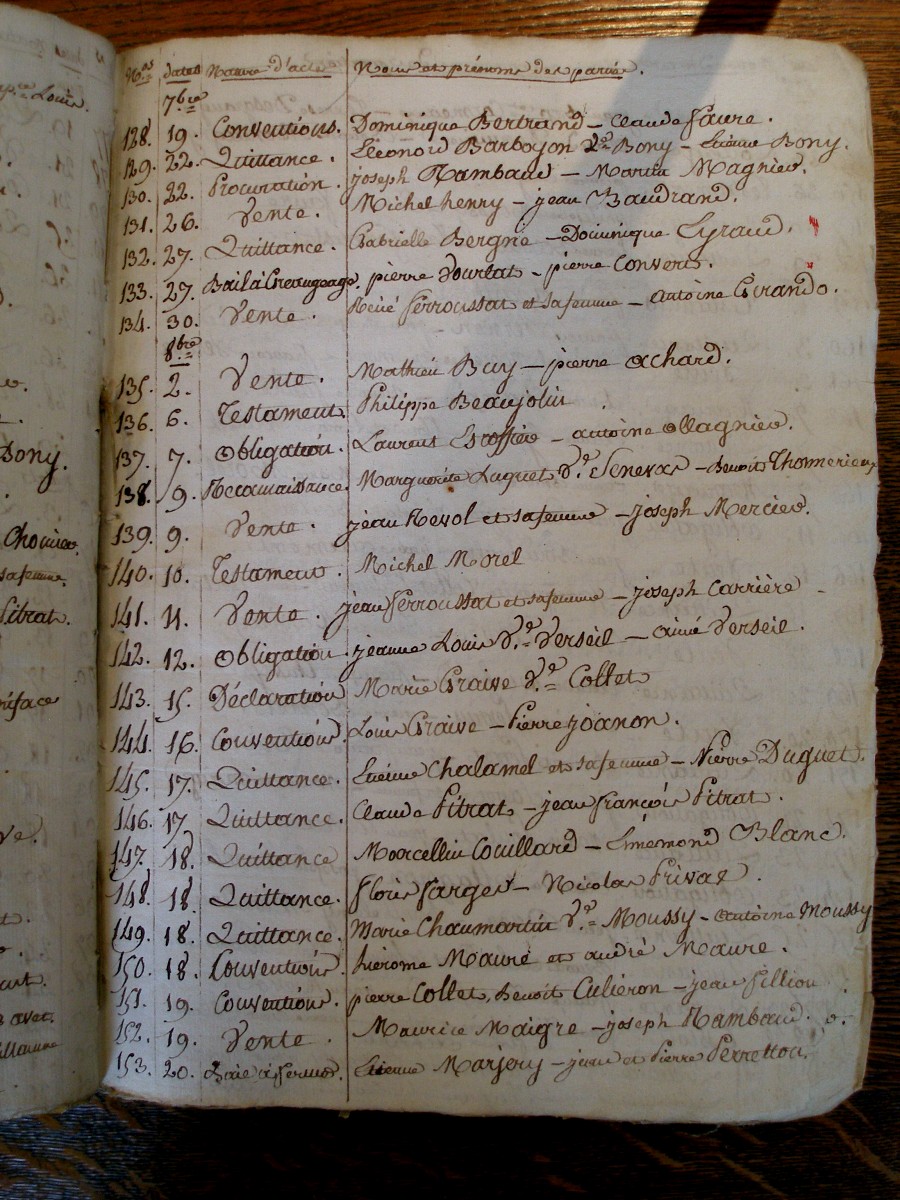 Nos dates Nature d'acte Noms et prénoms des parties.
7bre
128. 19. Conventions. Dominique Bertrand - Claude Faure.
129. 22. Quittance. Léonord Barboyon Ve Bony - Etienne Bony.
130. 22. Procuration. joseph Rambaud - Martin Magnier.
131. 26. Vente. Michel henry - jean Baudrand.
132. 27. Quittance. Gabrielle Bergne - Dominique Eyraud.
133. 27. Bail à pierre dourlat - pierre Convert.
134. 30. Vente. Ferroussat et sa femme - Antoine Girando.
8bre
135. 2. Vente. Mathieu Buy - pierre achard.
136. 6. Testament. Philippe Beaujolin
137. 7. Obligation. Laurent Escoffier - antoine ollagnier.
138. 9. Reconnaissance. Marguerite Luquet Ve - Benoit Thomerieux
139. 9. Vente. jean Revol et sa femme - joseph Mercier.
140. 10. Testament. Michel Morel
141. 11. Vente. jean Ferroussat et sa femme - joseph Carrière
142. 12. Obligation. jeanne Louis Ve Verseil - aimé Verseil.
143. 15. Déclaration Marie Graive Ve Collet
144. 16. Convention. Louis Graive - Pierre joanon.
145. 17. Quittance. Etienne Chalamel et sa femme - Pierre Duguet.
146. 17 Quittance. Claude Pitrat - jean françois Pitrat.
147. 18. Quittance Marcellin Couillard - Enemond Blanc.
148. 18. Quittance. Floris Farget - Nicolas Privat.
149. 18. Quittance. Marie Chaumartin Ve Moussy - antoine Moussy
150. 18. Convention. hierome Maure et andré Maure.
151. 19. Convention. pierre Collet, Benoit Culieron - jean fillion
152. 19. Vente. Maurice Maigre - joseph Rambaud.
153. 20. Baie à ferme. Etienne Marjory - jean et Pierre Perretton.